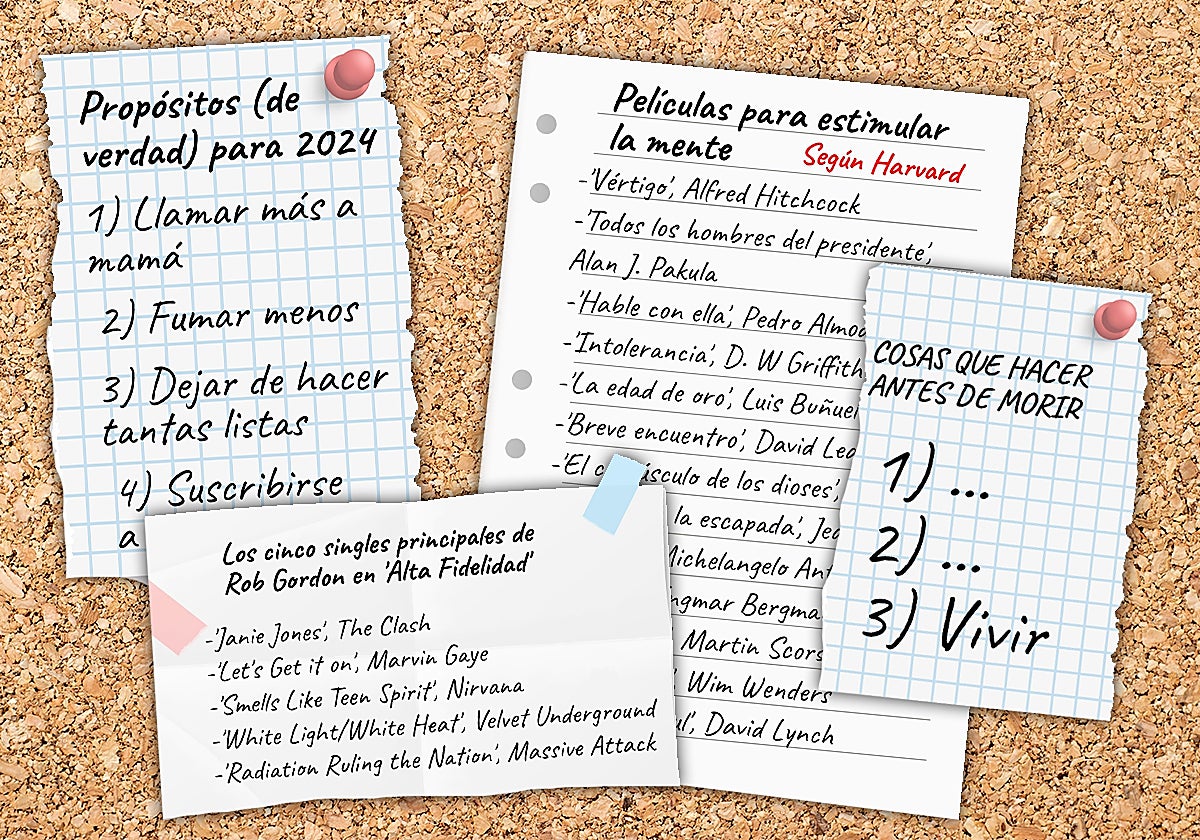 Propósitos (de
verdad) para 2024
1) Llamar más a
mamá
2) Fumar menos
3) Dejar de hacer
tantas listas
4) Suscribirse
a
Películas para estimular
la mente
Según Harvard
-'Vértigo', Alfred Hitchcock
-'Todos los hombres del presidente',
Alan J. Pakula
-'Hable con ella', Pedro
-'Intolerancia', D. W Griffith
-'La edad de oro', Luis Buñuel
-'Breve encuentro', David
-'El de los dioses',
la escapada',
Michelangelo
Ingmar
Martin
Wim Wenders
David Lynch
COSAS QUE HACER
ANTES DE MORIR
1) ...
2) ...
3) Vivir
Los cinco singles principales de
Rob Gordon en 'Alta Fidelidad"
-'Janie Jones', The Clash
-'Let's Get it on', Marvin Gaye
-'Smells Like Teen Spirit', Nirvana
-'White Light/White Heat', Velvet Underground
-'Radiation Ruling the Nation', Massive Attack